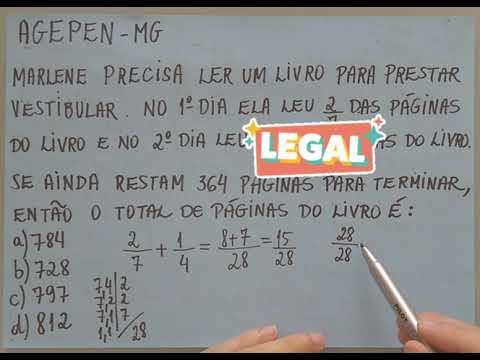 AGEPEN-MG
MARLENE PRECISA LER UM LIVRO PARA PRESTAR
VESTIBULAR. NO 1º DIA ELA LEU 2/7 DAS PÁGINAS
DO LIVRO E NO 2º DIA LEU DO LIVRO.
LEGAL
SE AINDA RESTAM 364 PÁGINAS PARA TERMINAR,
ENTÃO O TOTAL DE PÁGINAS DO LIVRO É:
a) 784
2/7 + 1/4 = 8+7/28 = 15/28 28/28
b) 728
c) 797
d) 812
7,4 | 2
7,2 | 2
7,1 | 7
1,1 / 28
PILOT